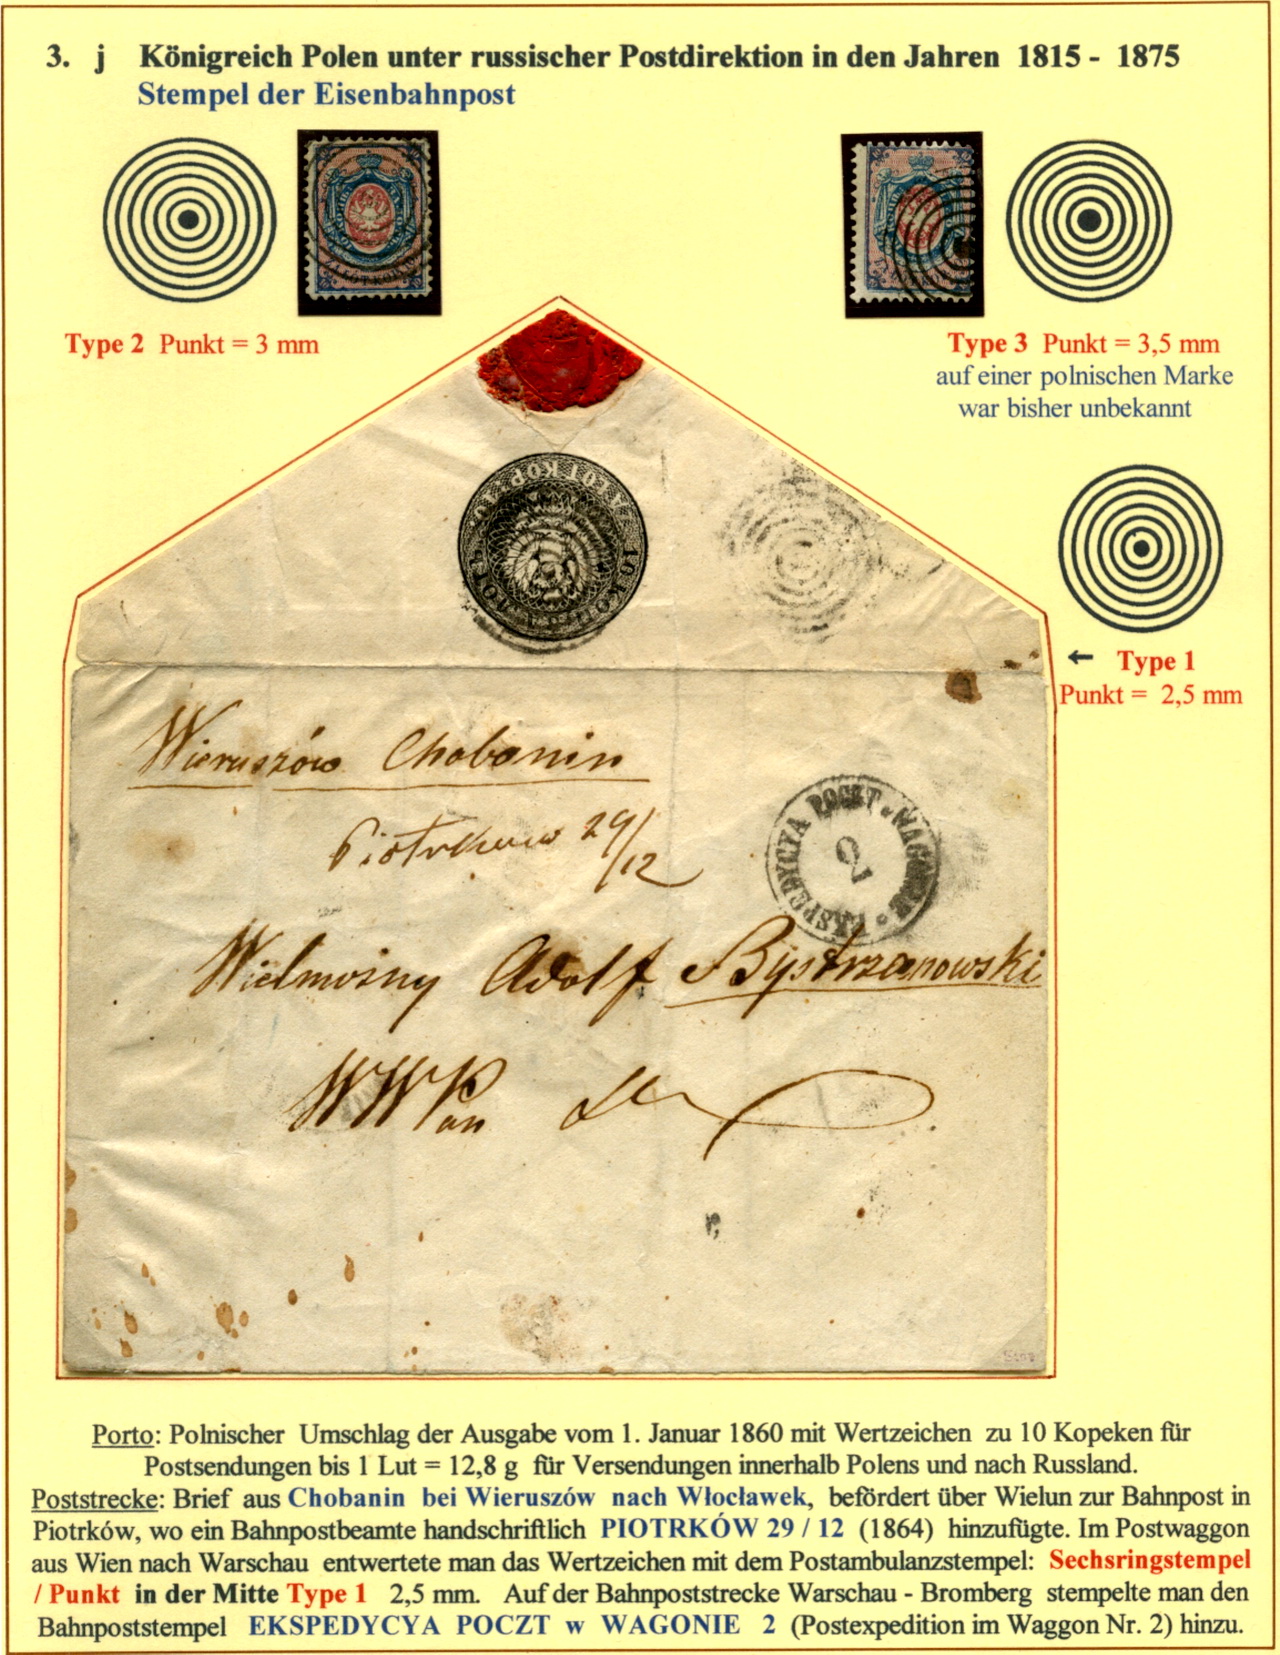 3. j Königreich Polen unter russischer Postdirektion in den Jahren 1815 - 1875
Stempel der Eisenbahnpost
Type 2 Punkt = 3 mm
Type 3 Punkt = 3,5 mm
auf einer polnischen Marke
war bisher unbekannt
← Type 1
Punkt = 2,5 mm
Wieruszów Chobanin
Piotrkuw 29/12
EKSPEDYCYA POCZT. w WAGONIE
2
Wielmożny Adolf Bystrzanowski
WW Pan
Porto: Polnischer Umschlag der Ausgabe vom 1. Januar 1860 mit Wertzeichen zu 10 Kopeken für
Postsendungen bis 1 Lut = 12,8 g für Versendungen innerhalb Polens und nach Russland.
Poststrecke: Brief aus Chobanin bei Wieruszów nach Włocławek, befördert über Wielun zur Bahnpost in
Piotrków, wo ein Bahnpostbeamte handschriftlich PIOTRKÓW 29 / 12 (1864) hinzufügte. Im Postwaggon
aus Wien nach Warschau entwertete man das Wertzeichen mit dem Postambulanzstempel: Sechsringstempel
/ Punkt in der Mitte Type 1 2,5 mm. Auf der Bahnpoststrecke Warschau - Bromberg stempelte man den
Bahnpoststempel EKSPEDYCYA POCZT w WAGONIE 2 (Postexpedition im Waggon Nr. 2) hinzu.